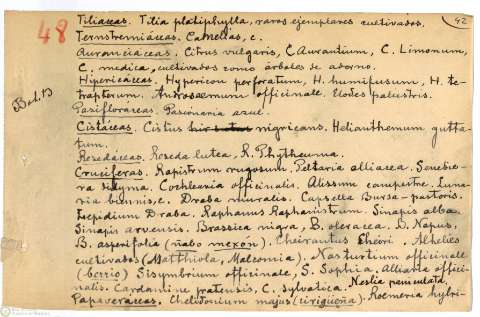 48
42
Bol. B
Tiliáceas. Tilia platiphylla, raros ejemplares cultivados.
Ternstremiáceas. Camellas, c.
Auranciáceas. Citrus vulgaris, C. Aurantium, C. Limonum,
C. medica, cultivados como árboles de adorno.
Hipericáceas. Hypericon perforatum, H. humifusum, H. te-
trapterum. Androsaemum officinale. Elodes palustris.
Pasifloráceas. Pasionaria azul.
Cistáceas. Cistus nigricans. Helianthemum gutta-
tum.
Resedáceas. Reseda lutea, R. Phytheuma.
Crucíferas. Rapistrum rugosum. Peltaria alliacea. Senebie-
ra Cochlearia officinalis. Alissum campestre. Luna-
ria biennis, c. Draba muralis. Capsella Bursa-pastoris.
Lepidium Draba. Raphanus Raphanistrum. Sinapis alba
Sinapis arvensis. Brassica nigra, B. oleracea. B. Napus,
B. asperifolia (nabo mexon). Cheirantus Cheiri. Alhelies
cultivados (Matthiola, Malcomia). Nasturtium officinale
(berrio) Sisymbrium officinale, S. Sophia, Alliaria offici-
nalis. Cardamine pratensis, C. sylvatica. Neslia paniculata.
Papaveráceas. Chelidonium majus (cirigüeña). Roemeria hybri-